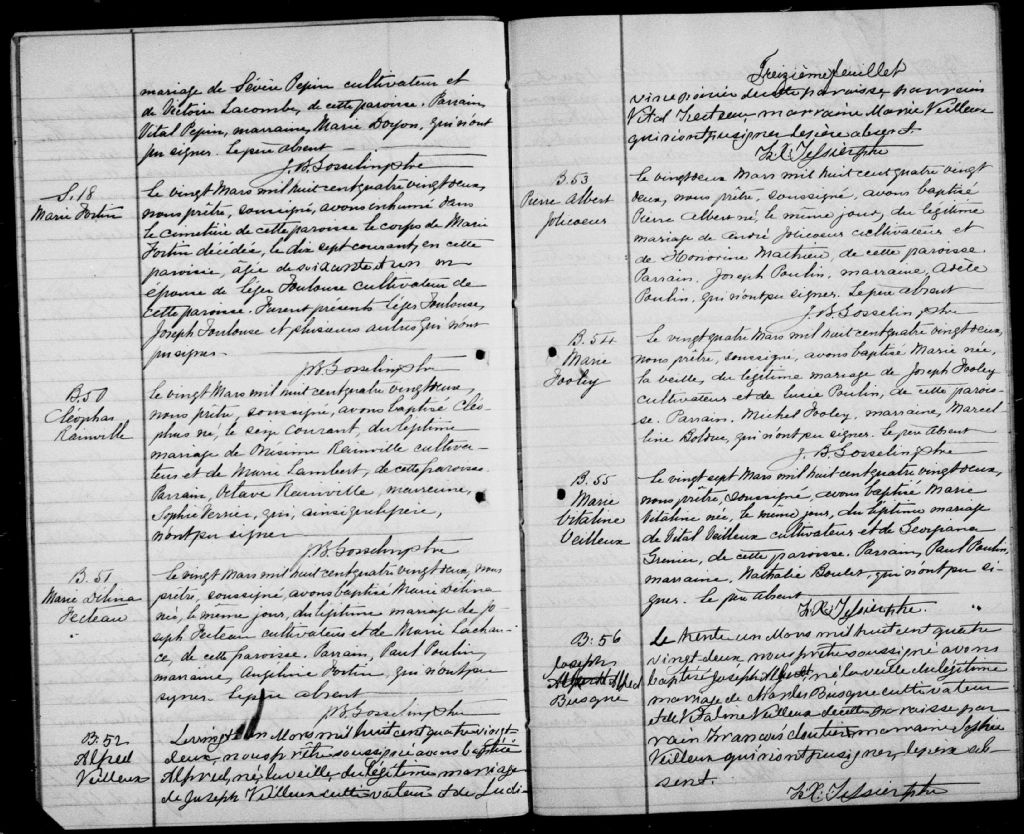 mariage de Sévère Pepin cultivateur et
de Victoire Lacombe, de cette paroisse. Parrain,
Vital Pepin, marraine, Marie Doyon, qui n'ont
pu signer. Le père absent
J. B. Gosselin ptre
S. 18
Marie Fortin
Le vingt Mars mil huit cent quatre vingt deux,
nous prêtre, soussigné, avons inhumé dans
le cimetière de cette paroisse le corps de Marie
Fortin décédée, le dix sept courant, en cette
paroisse, âgée de soixante et un an
épouse de Léger Toulouse cultivateur de
cette paroisse. Furent présents Léger Toulouse,
Joseph Toulouse et plusieurs autres qui n'ont
pu signer.
J. B. Gosselin ptre
B. 50
Cléophas
Rainville
Le vingt Mars mil huit cent quatre vingt deux,
nous prêtre, soussigné, avons baptisé Cléo-
phas né, le seize courant, du légitime
mariage de Rainville cultiva-
teur et de Marie Lambert, de cette paroisse.
Parrain, Octave Rainville, marraine,
Sophie Verrier, qui, ainsi que le père,
n'ont pu signer
J. B. Gosselin ptre
B. 51
Marie Délina
Fecteau
Le vingt Mars mil huit cent quatre vingt deux, nous
prêtre, soussigné, avons baptisé Marie Délina
née, le même jour, du légitime mariage de Jo-
seph Fecteau cultivateur et de Marie Lachan-
ce, de cette paroisse. Parrain, Paul Poulin,
marraine, Angéline Fortin, qui n'ont pu
signer. Le père absent
J. B. Gosselin ptre
B. 52
Alfred
Veilleux
Le vingt un Mars mil huit cent quatre vingt
deux, nous prêtre soussigné avons baptisé
Alfred, né la veille, du légitime mariage
de Joseph Veilleux cultivateur et de Ludi-
Treizième feuillet
vine Poirier de cette paroisse parrain
Vital marraine Marie Veilleux
qui n'ont pu signer le père absent.
F. X. Tessier ptre
B. 53
Pierre Albert
Jolicoeur
Le vingt deux Mars mil huit cent quatre vingt
deux, nous prêtre, soussigné, avons baptisé
Pierre Albert né, le même jour, du légitime
mariage de André Jolicoeur cultivateur et
de Honorine Mathieu, de cette paroisse.
Parrain, Joseph Poulin, marraine, Adèle
Poulin, qui n'ont pu signer. Le père absent
J. B. Gosselin ptre
B. 54
Marie
Fooley
Le vingt quatre Mars mil huit cent quatre vingt deux,
nous prêtre, soussigné, avons baptisé Marie née,
la veille, du légitime mariage de Joseph Fooley
cultivateur et de Lucie Poulin, de cette parois-
se. Parrain, Michel Fooley, marraine, Marcel-
line Bolduc, qui n'ont pu signer. Le père absent
J. B. Gosselin ptre
B. 55
Marie
Vitaline
Veilleux
Le vingt sept Mars mil huit cent quatre vingt deux,
nous prêtre, soussigné, avons baptisé Marie
Vitaline née, le même jour, du légitime mariage
de Vital Veilleux cultivateur et de Georgiana
Grenier, de cette paroisse. Parrain, Paul Poulin,
marraine, Nathalie Boulet, qui n'ont pu si-
gner. Le père absent
F. X. Tessier ptre.
B: 56
Joseph
Alfred
Busque
Le trente un Mars mil huit cent quatre
vingt deux, nous prêtre soussigné avons
baptisé Joseph né la veille du légitime
mariage de Charles Busque cultivateur
et de Vitaline Veilleux de cette paroisse par-
rain François Cloutier marraine Sophie
Veilleux qui n'ont pu signer, le père ab-
sent.
F. X. Tessier ptre